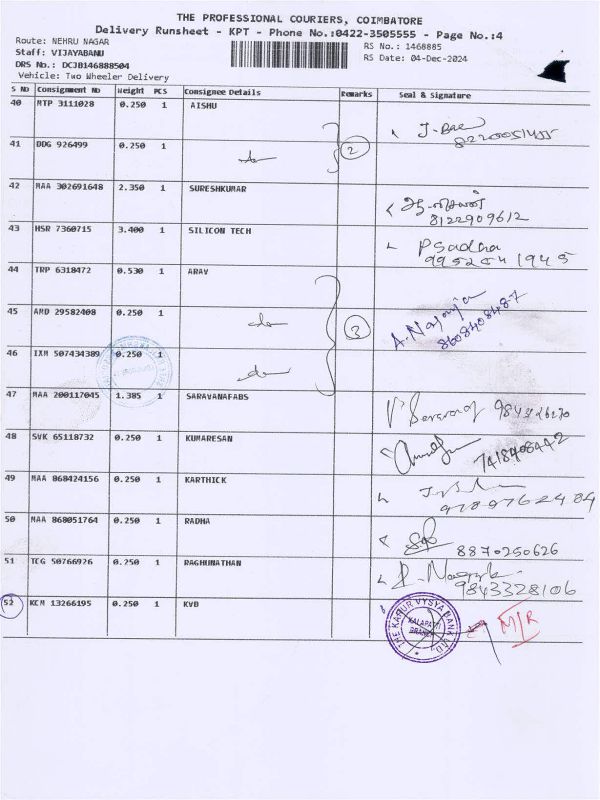 THE PROFESSIONAL COURIERS, COIMBATORE
Delivery Runsheet - KPT - Phone No.:0422-3505555 - Page No.:4
Route: NEHRU NAGAR RS No.: 1468885
Staff: VIJAYABANU RS Date: 04-Dec-2024
DRS No.: DCJB146888504
Vehicle: Two Wheeler Delivery
S No Consignment No Weight PCS Consignee Details Remarks Seal & Signature
40 MTP 3111028 0.250 1 AISHU
41 DDG 926499 0.250 1 2
42 MAA 302691648 2.350 1 SURESHKUMAR
8122909612
43 HSR 7360715 3.400 1 SILICON TECH
P Sudha
44 TRP 6318472 0.530 1 ARAV
45 AMD 29582408 0.250 1 3
8608408487
46 IXM 507434389 0.250 1
47 MAA 200117045 1.385 1 SARAVANAFABS
48 SVK 65118732 0.250 1 KUMARESAN
7418408442
49 MAA 868424156 0.250 1 KARTHICK
50 MAA 868051764 0.250 1 RADHA
8870250626
51 TCG 50766926 0.250 1 RAGHUNATHAN
9843328106
52 KCM 13266195 0.250 1 KVB
THE KARUR VYSYA BANK LTD.
BRANCH
M/R